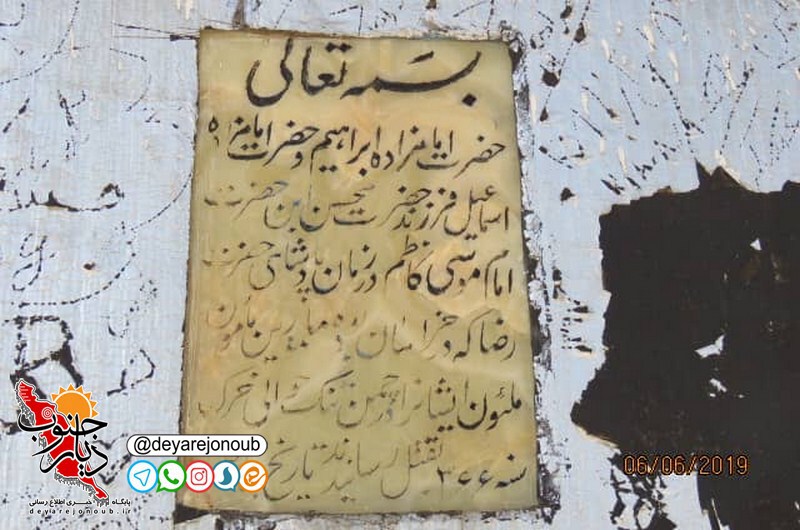 بسمه تعالی
حضرت امامزاده ابراهیم و حضرت امامزاده
اسماعیل فرزند حضرت محسن ابن حضرت
امام موسی کاظم در زمان پادشاهی حضرت
رضا که در خراسان بوده مامورین مامون
ملئون ایشانرا در چمن تنگ الی خرک
بقتل رسانیدند تاریخ
سنه ۳۶۶
@deyarejonoub
دیار جنوب
پایگاه خبری اطلاع رسانی
deyarejonoub.ir
06/06/2019